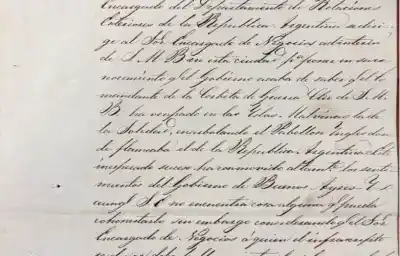 Encargado del Departamento de Relaciones
Exteriores de la Republica Argentina se diri-
ge al Sõr Encargado de Negocios interino
de S. M. B. en esta ciudad pª poner en su co-
nocimiento q.e el Gobierno acaba de saber q.e el Co-
mandante de la Corbeta de Guerra Clio de S. M.
B. ha ocupado en las Islas Malvinas la de
la Soledad, enarbolando el Pabellon Ingles don-
de flameaba el de la Republica Argentina. Este
inesperado suceso ha conmovido altamte los senti-
mientos del Gobierno de Buenos Ayres. Y
aunq.e S. E. no encuentra cosa alguna q.e pueda
cohonestarlo sin embargo considerando q.e el Sõr
Encargado de Negocios á quien el infrascripto